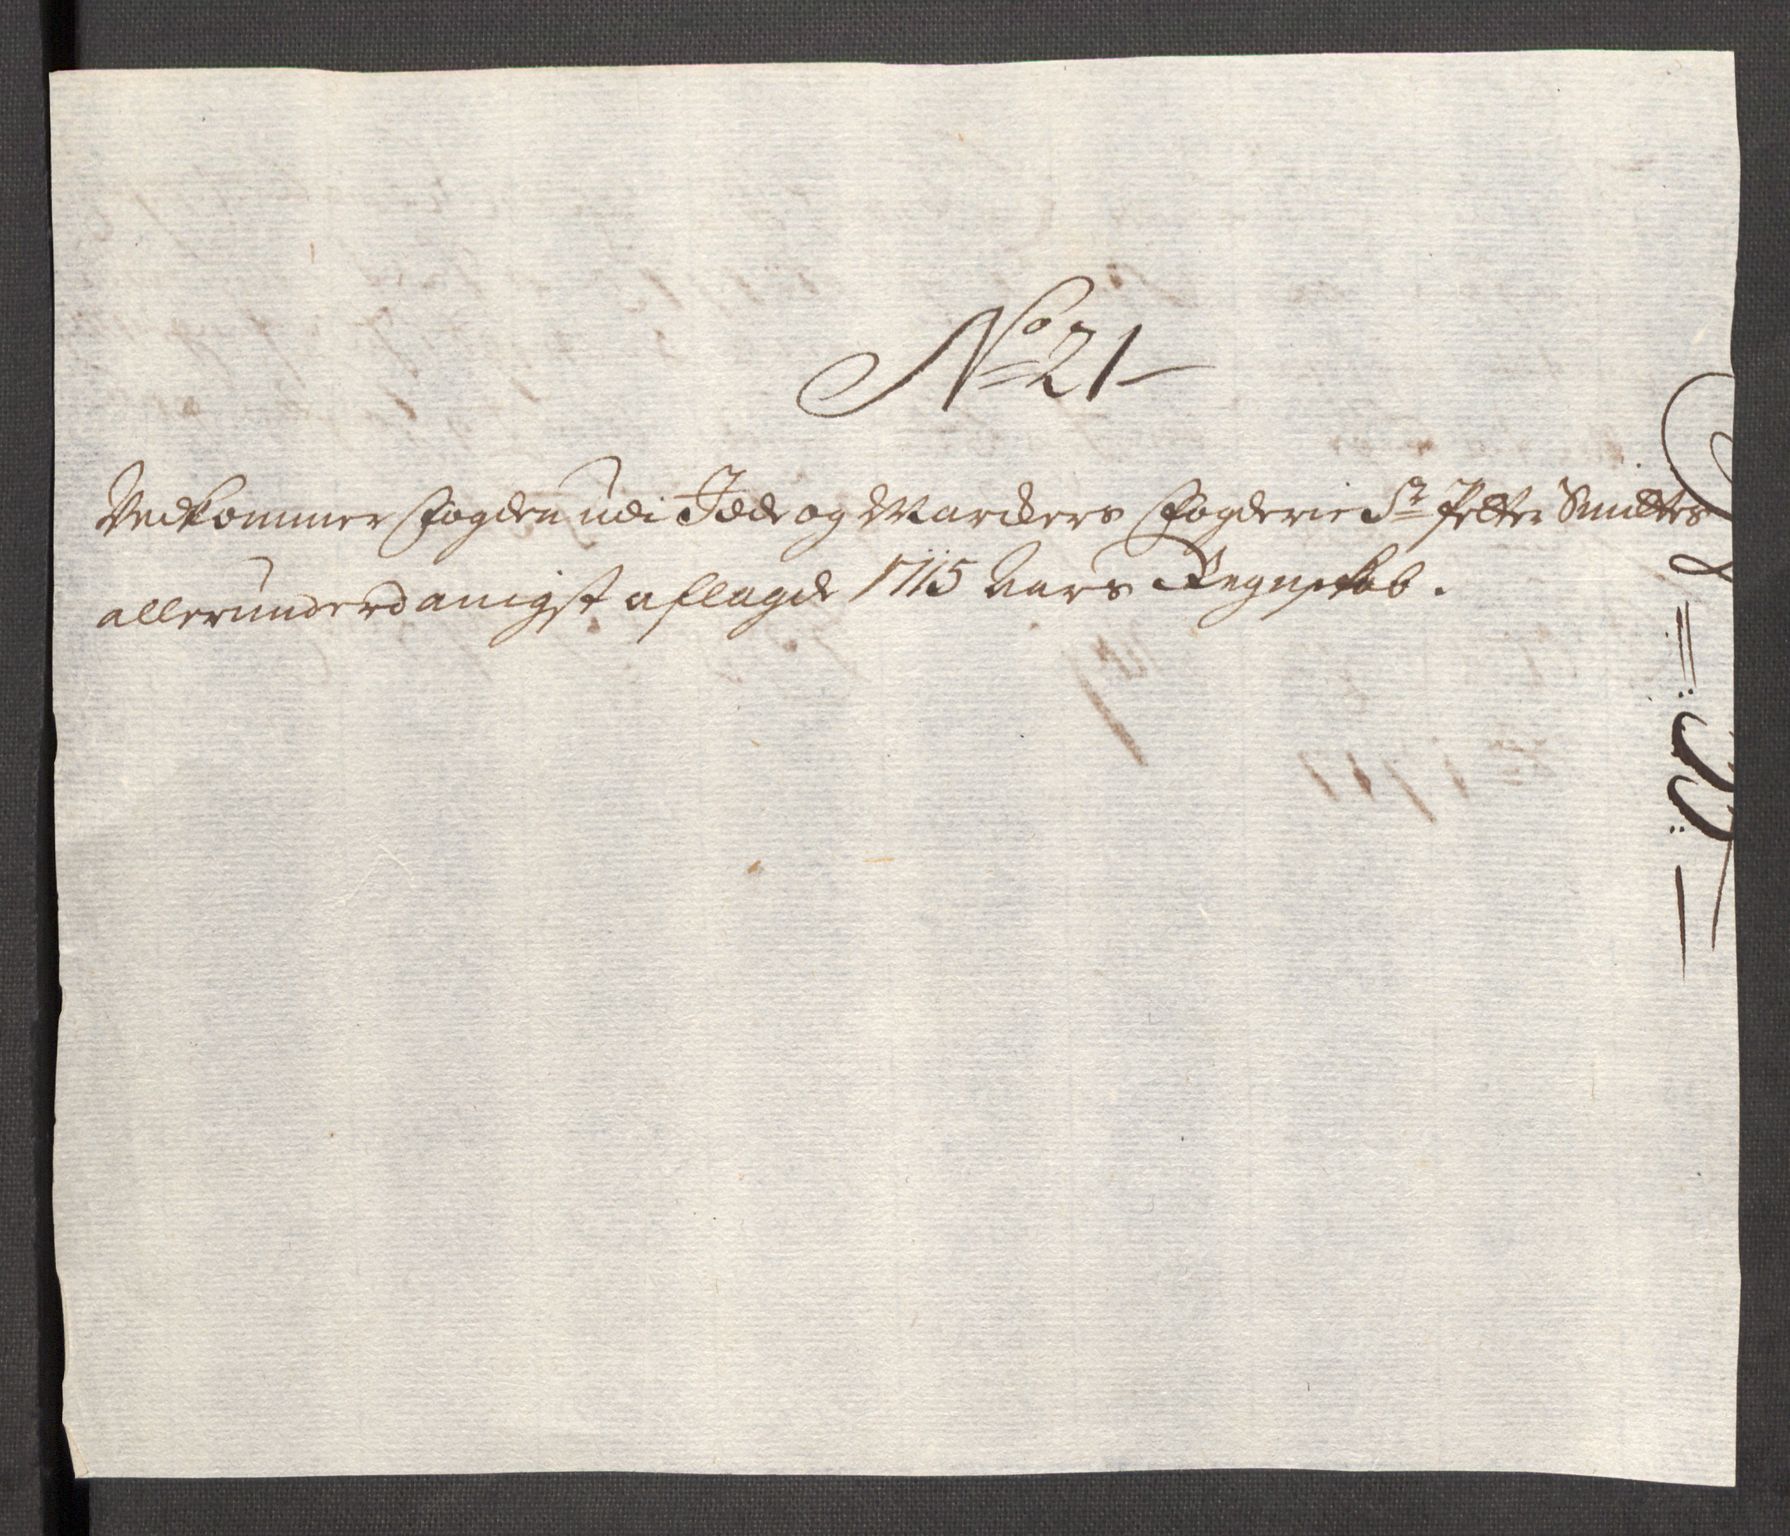 No 21
Vedkommer Fogden udi Idde og Marckers Fogderie Sr Petter Smidtes
allerunderdanigst aflagde 1715 Aars Regnskab.